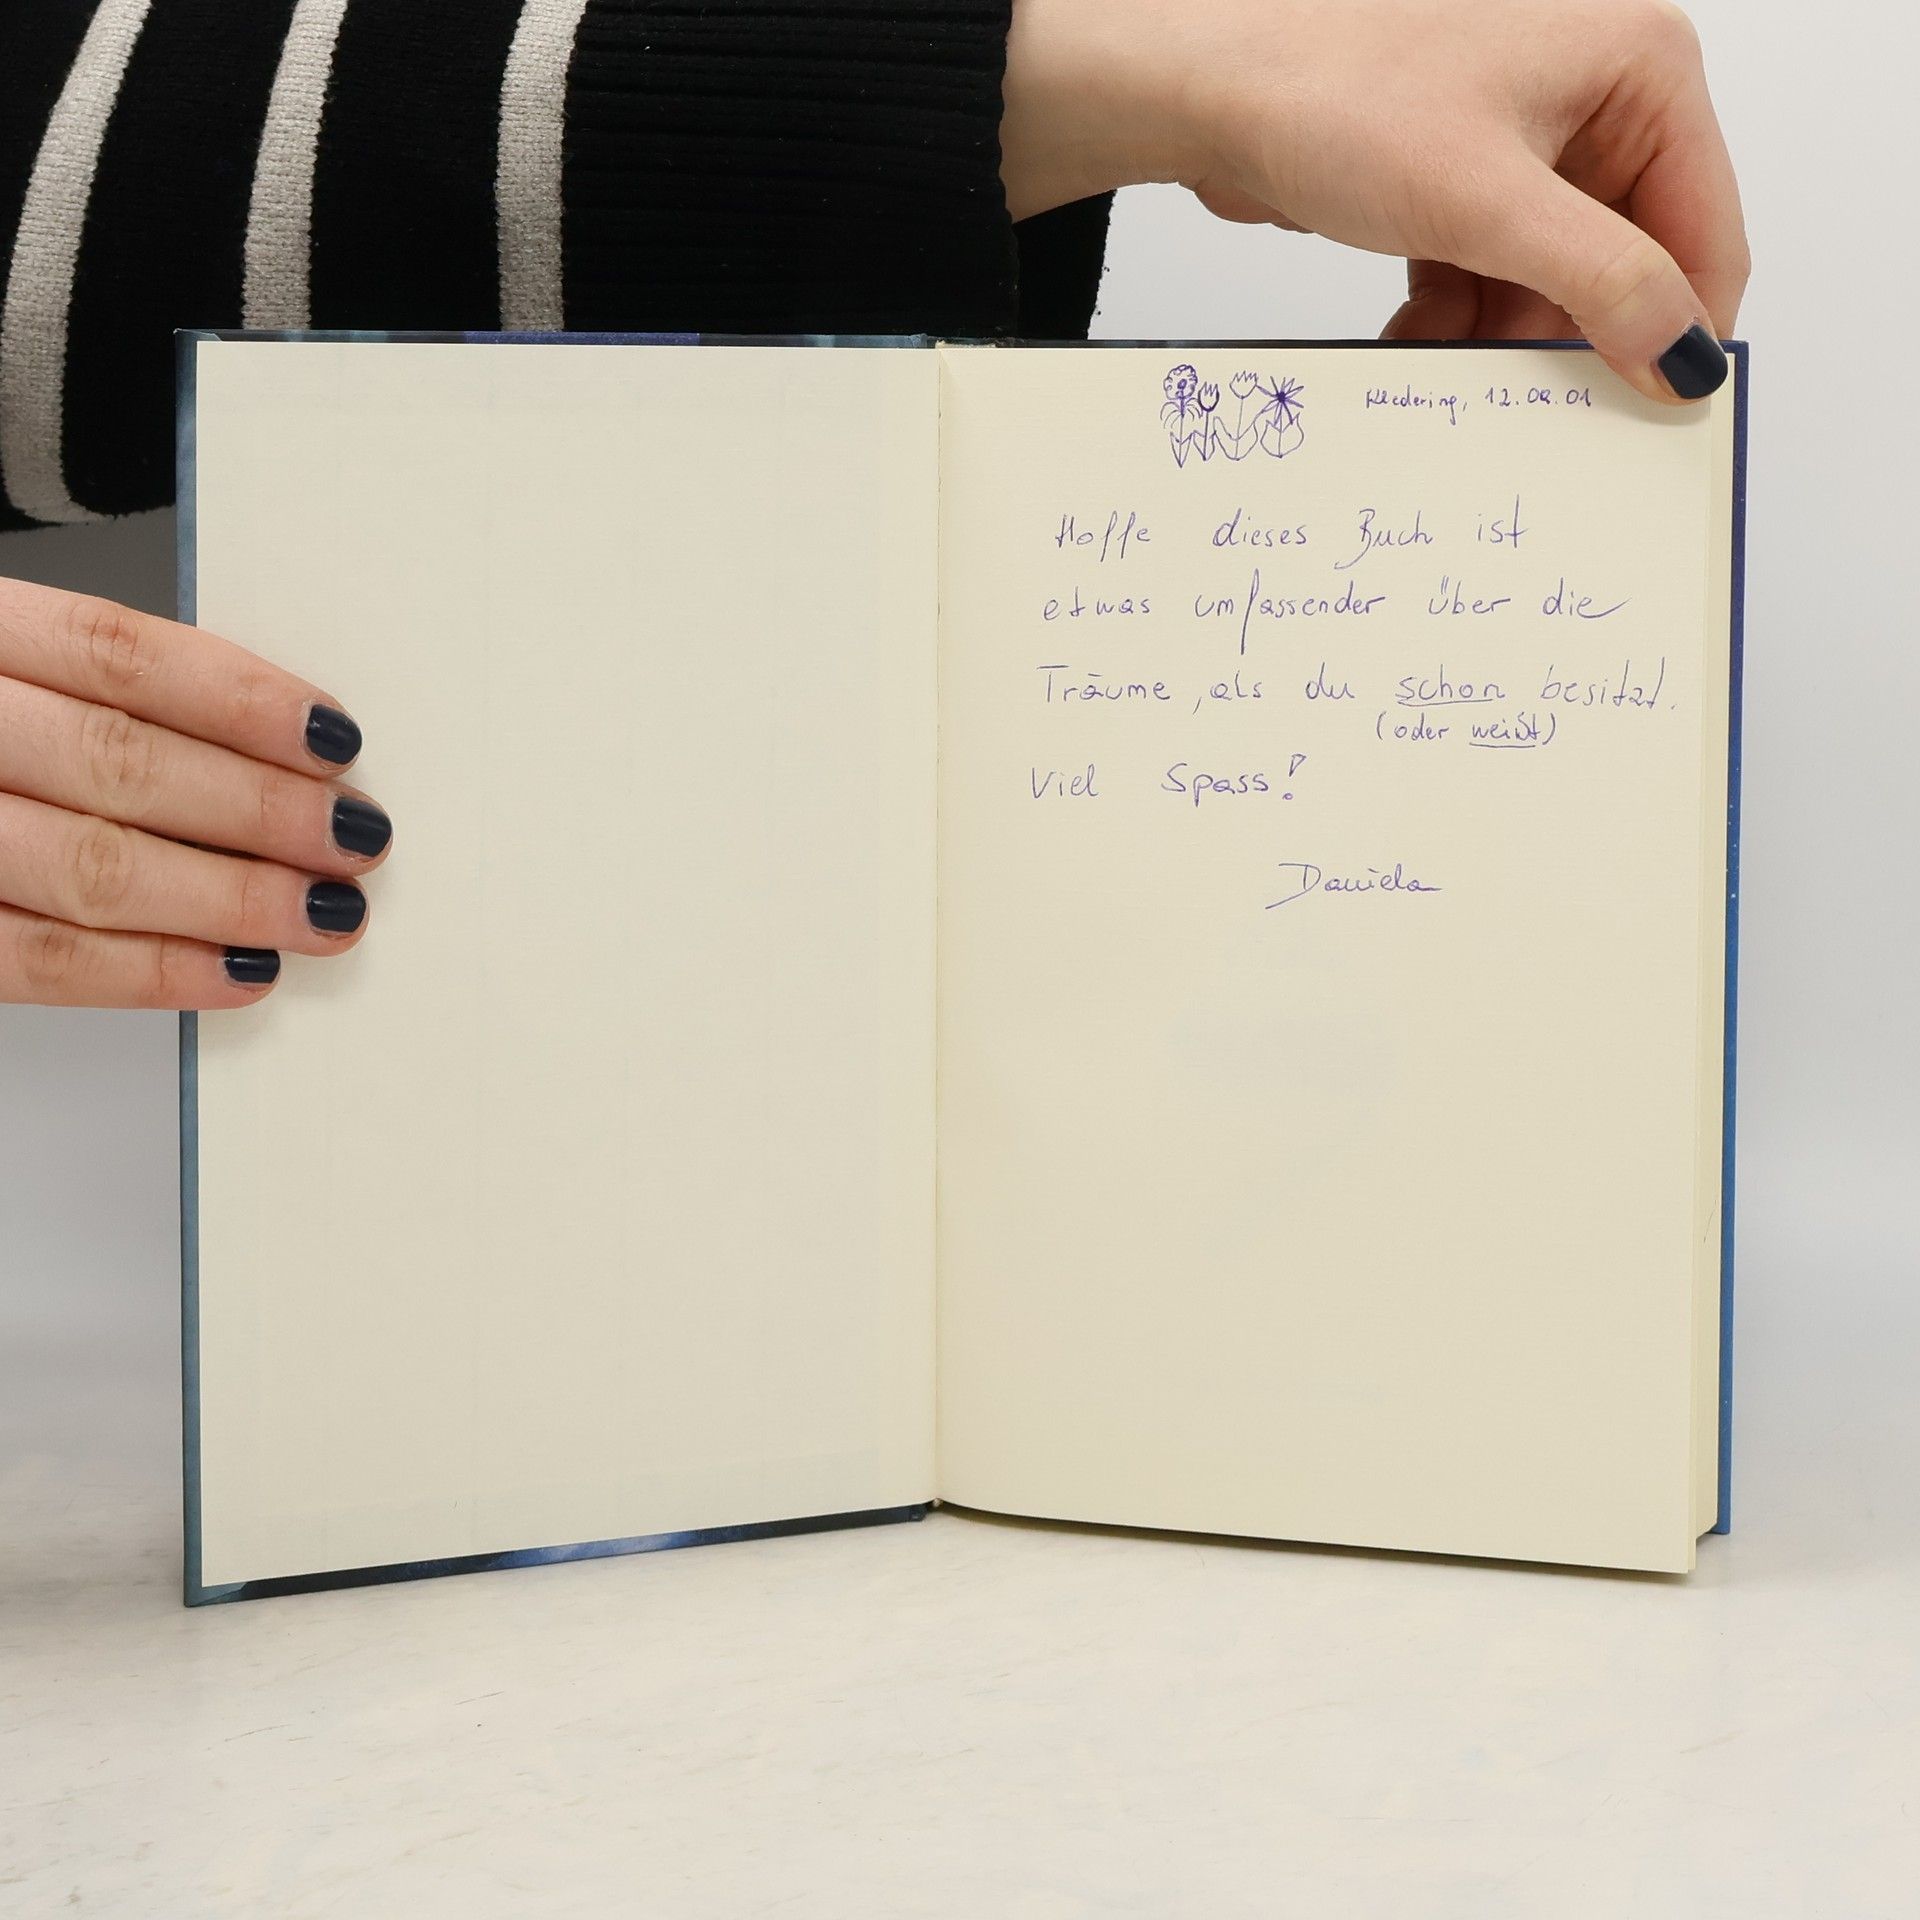 Kledering, 12.09.01
Hoffe dieses Buch ist
etwas umfassender über die
Träume, als du schon besitzt.
(oder weißt)
Viel Spass!
Daniela